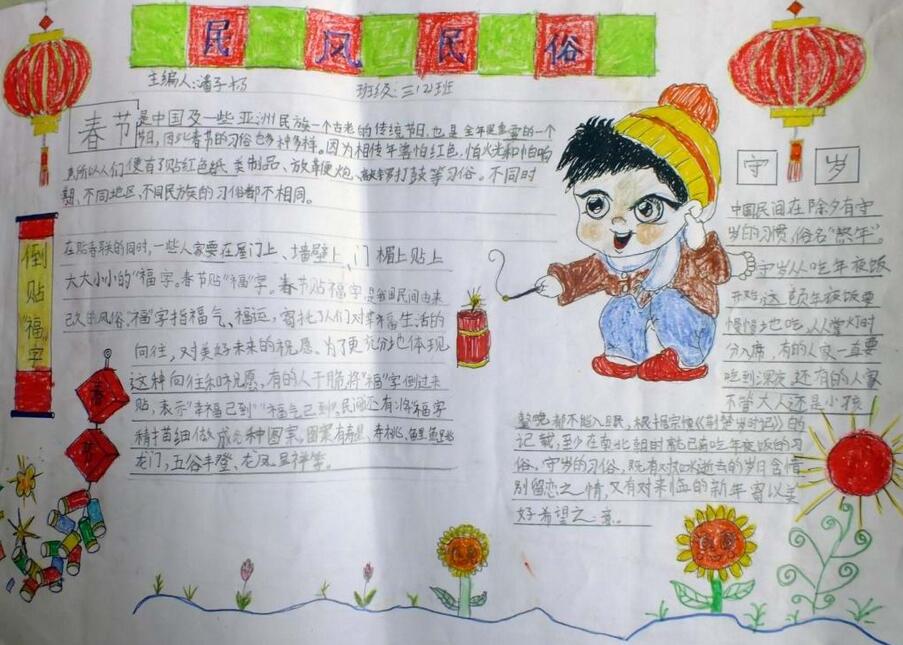 民风民俗
主编人:潘子杨 班级:三12班
春节是中国及一些亚洲民族一个古老的传统节日,也是全年最重要的一个
节日,因此春节的习俗也多种多样。因为相传年害怕红色,怕火光和怕响
声,所以人们便有了贴红色纸类制品、放鞭炮、敲锣打鼓等习俗。不同时
期、不同地区、不同民族的习俗都不相同。
倒贴“福”字
在贴春联的同时,一些人家要在屋门上、墙壁上、门楣上贴上
大大小小的“福”字。春节贴“福”字。春节贴福字是我国民间由来
已久的风俗。“福”字指福气、福运,寄托了人们对幸福生活的
向往,对美好未来的祝愿。为了更充分地体现
这种向往和祝愿,有的人干脆将“福”字倒过来
贴,表示“幸福已到”“福气已到”。民间还有将“福”字
精描细做成各种图案,图案有寿星、寿桃、鲤鱼跳
龙门、五谷丰登、龙凤呈祥等。
春
守岁
中国民间在除夕有守
岁的习惯,俗名“熬年”。
守岁从吃年夜饭
开始,这顿年夜饭要
慢慢地吃,从掌灯时
分入席,有的人家一直要
吃到深夜。还有的人家
不管大人还是小孩
整晚都不能入眠,根据宗懔《荆楚岁时记》的
记载,至少在南北朝时就已有吃年夜饭的习
俗。守岁的习俗,既有对如水逝去的岁月含惜
别留恋之情,又有对来临的新年寄以美
好希望之意。